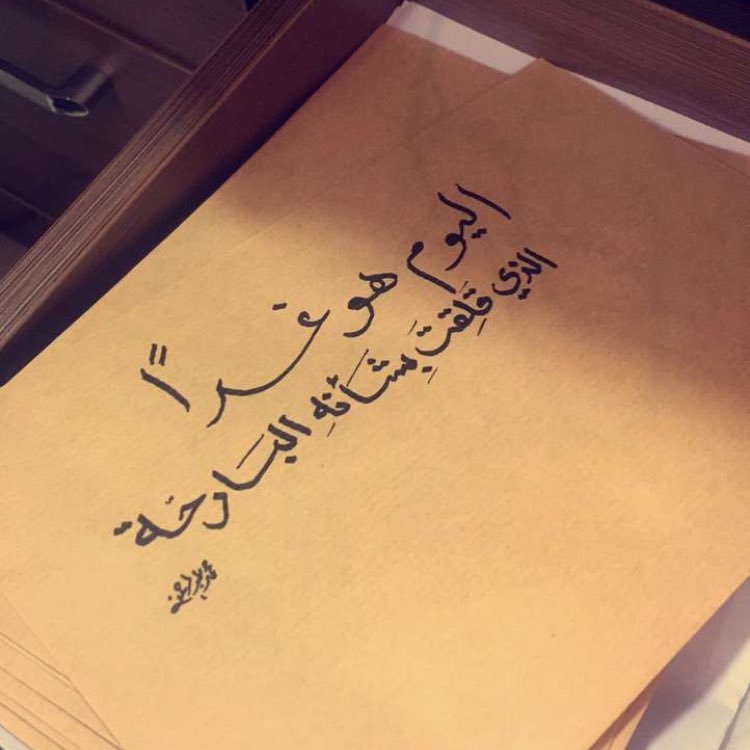 اليوم هو غداً
الذي قَلِقتَ بِشَأنهِ البَارحَة